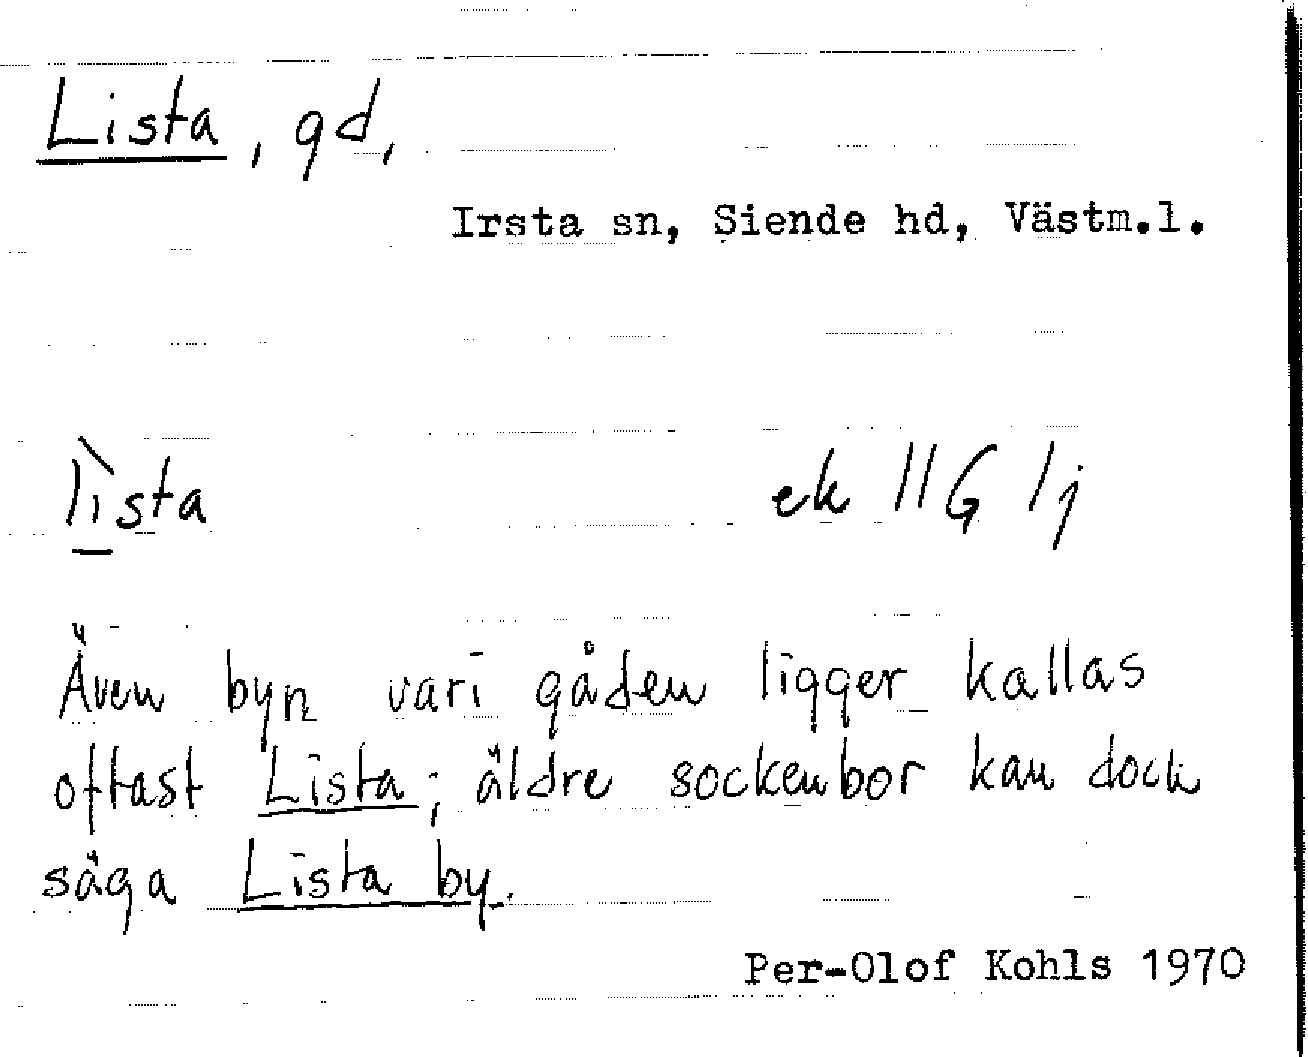 Lista, gd,
Irsta sn, Siende hd, Västm.l.
lìsta ek 11G 1j
Även byn vari gåden ligger kallas
oftast Lista; äldre sockenbor kan dock
säga Lista by.
Per-Olof Kohls 1970